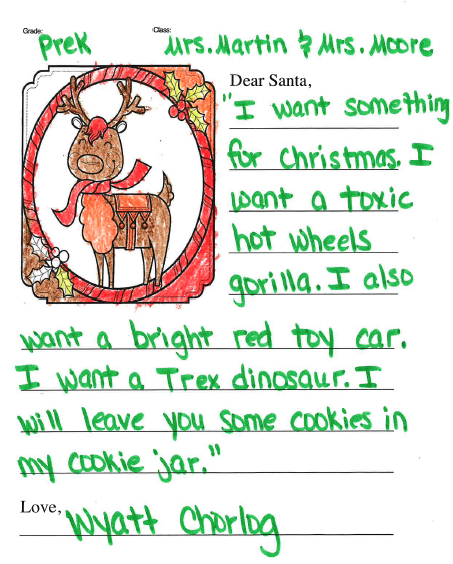 Grade: Class:
PreK Mrs. Martin & Mrs. Moore
Dear Santa,
"I want something
for Christmas. I
want a toxic
hot wheels
gorilla. I also
want a bright red toy car.
I want a Trex dinosaur. I
will leave you some cookies in
my cookie jar."
Love, Wyatt Chorlog